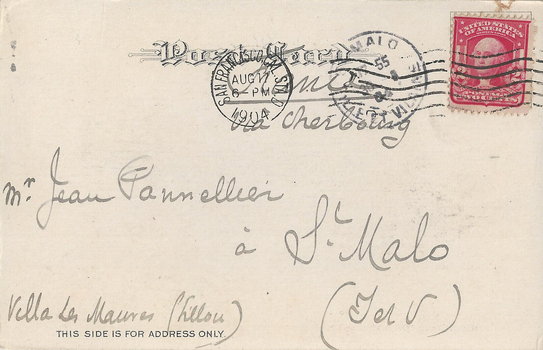 Post Card
SAN FRANCISCO, CAL. STA. D
AUG 17
6-PM
1904
MALO
55
ILLE-ET-VIL
UNITED STATES
OF AMERICA
POSTAGE
TWO CENTS
via Cherbourg
Mr Jean Pannellier
à St Malo
Villa Les Mauves (Sillon)
(I et V)
THIS SIDE IS FOR ADDRESS ONLY